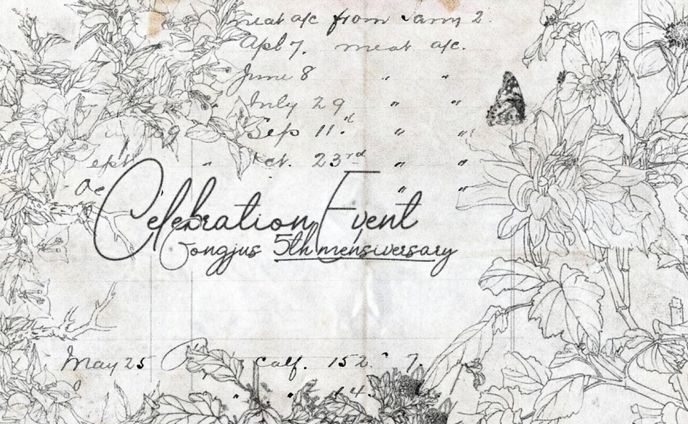 meat a/c from Jany 2.
Apl 7, meat a/c.
June 8 " "
July 29 " "
Sep 11.th " "
" Oct. 23rd " "
Oc
Celebration Event
Congjus 5th mensiversary
May 25 calf. 152. 7.
" " 14.